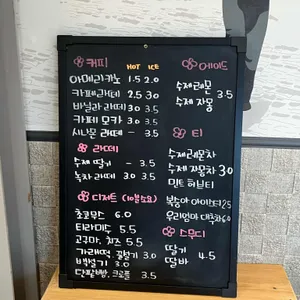 커피 HOT ICE
아메리카노 1.5 2.0
카페라떼 2.5 3.0
바닐라 라떼 3.0 3.5
카페 모카 3.0 3.5
시나몬 라떼 - 3.5
라떼
수제 딸기 - 3.5
녹차 라떼 3.0 3.5
디저트
초코무스 6.0
티라미수 5.5
고구마, 치즈 5.5
가래떡 꿀설기 3.0
백설기 3.0
단팥빵, 크로플 3.5
에이드
수제레몬 3.5
수제 자몽
티
수제레몬차
수제자몽차 3.0
민트 허브티
복숭아 아이스티 2.5
우리엄마 대추차 6.0
스무디
딸기 4.5
딸바